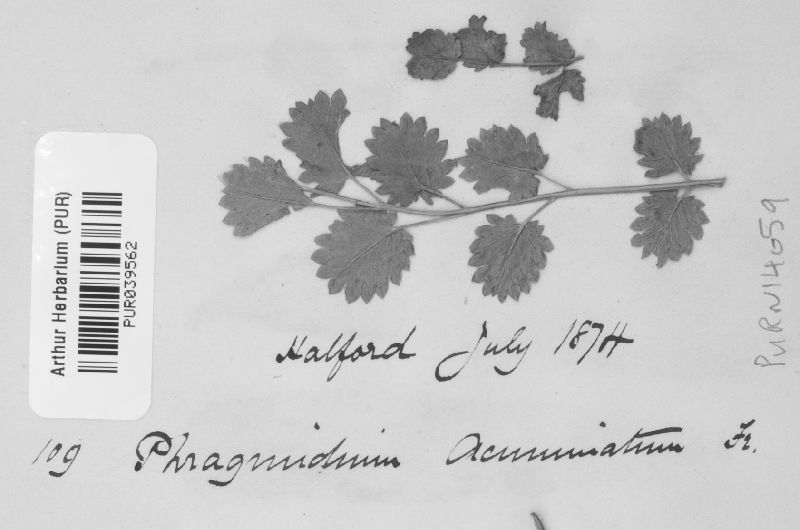 Arthur Herbarium (PUR)
PUR039562
PURN14059
Halford July 1874
109 Phragmidium Acuminatum Fr.